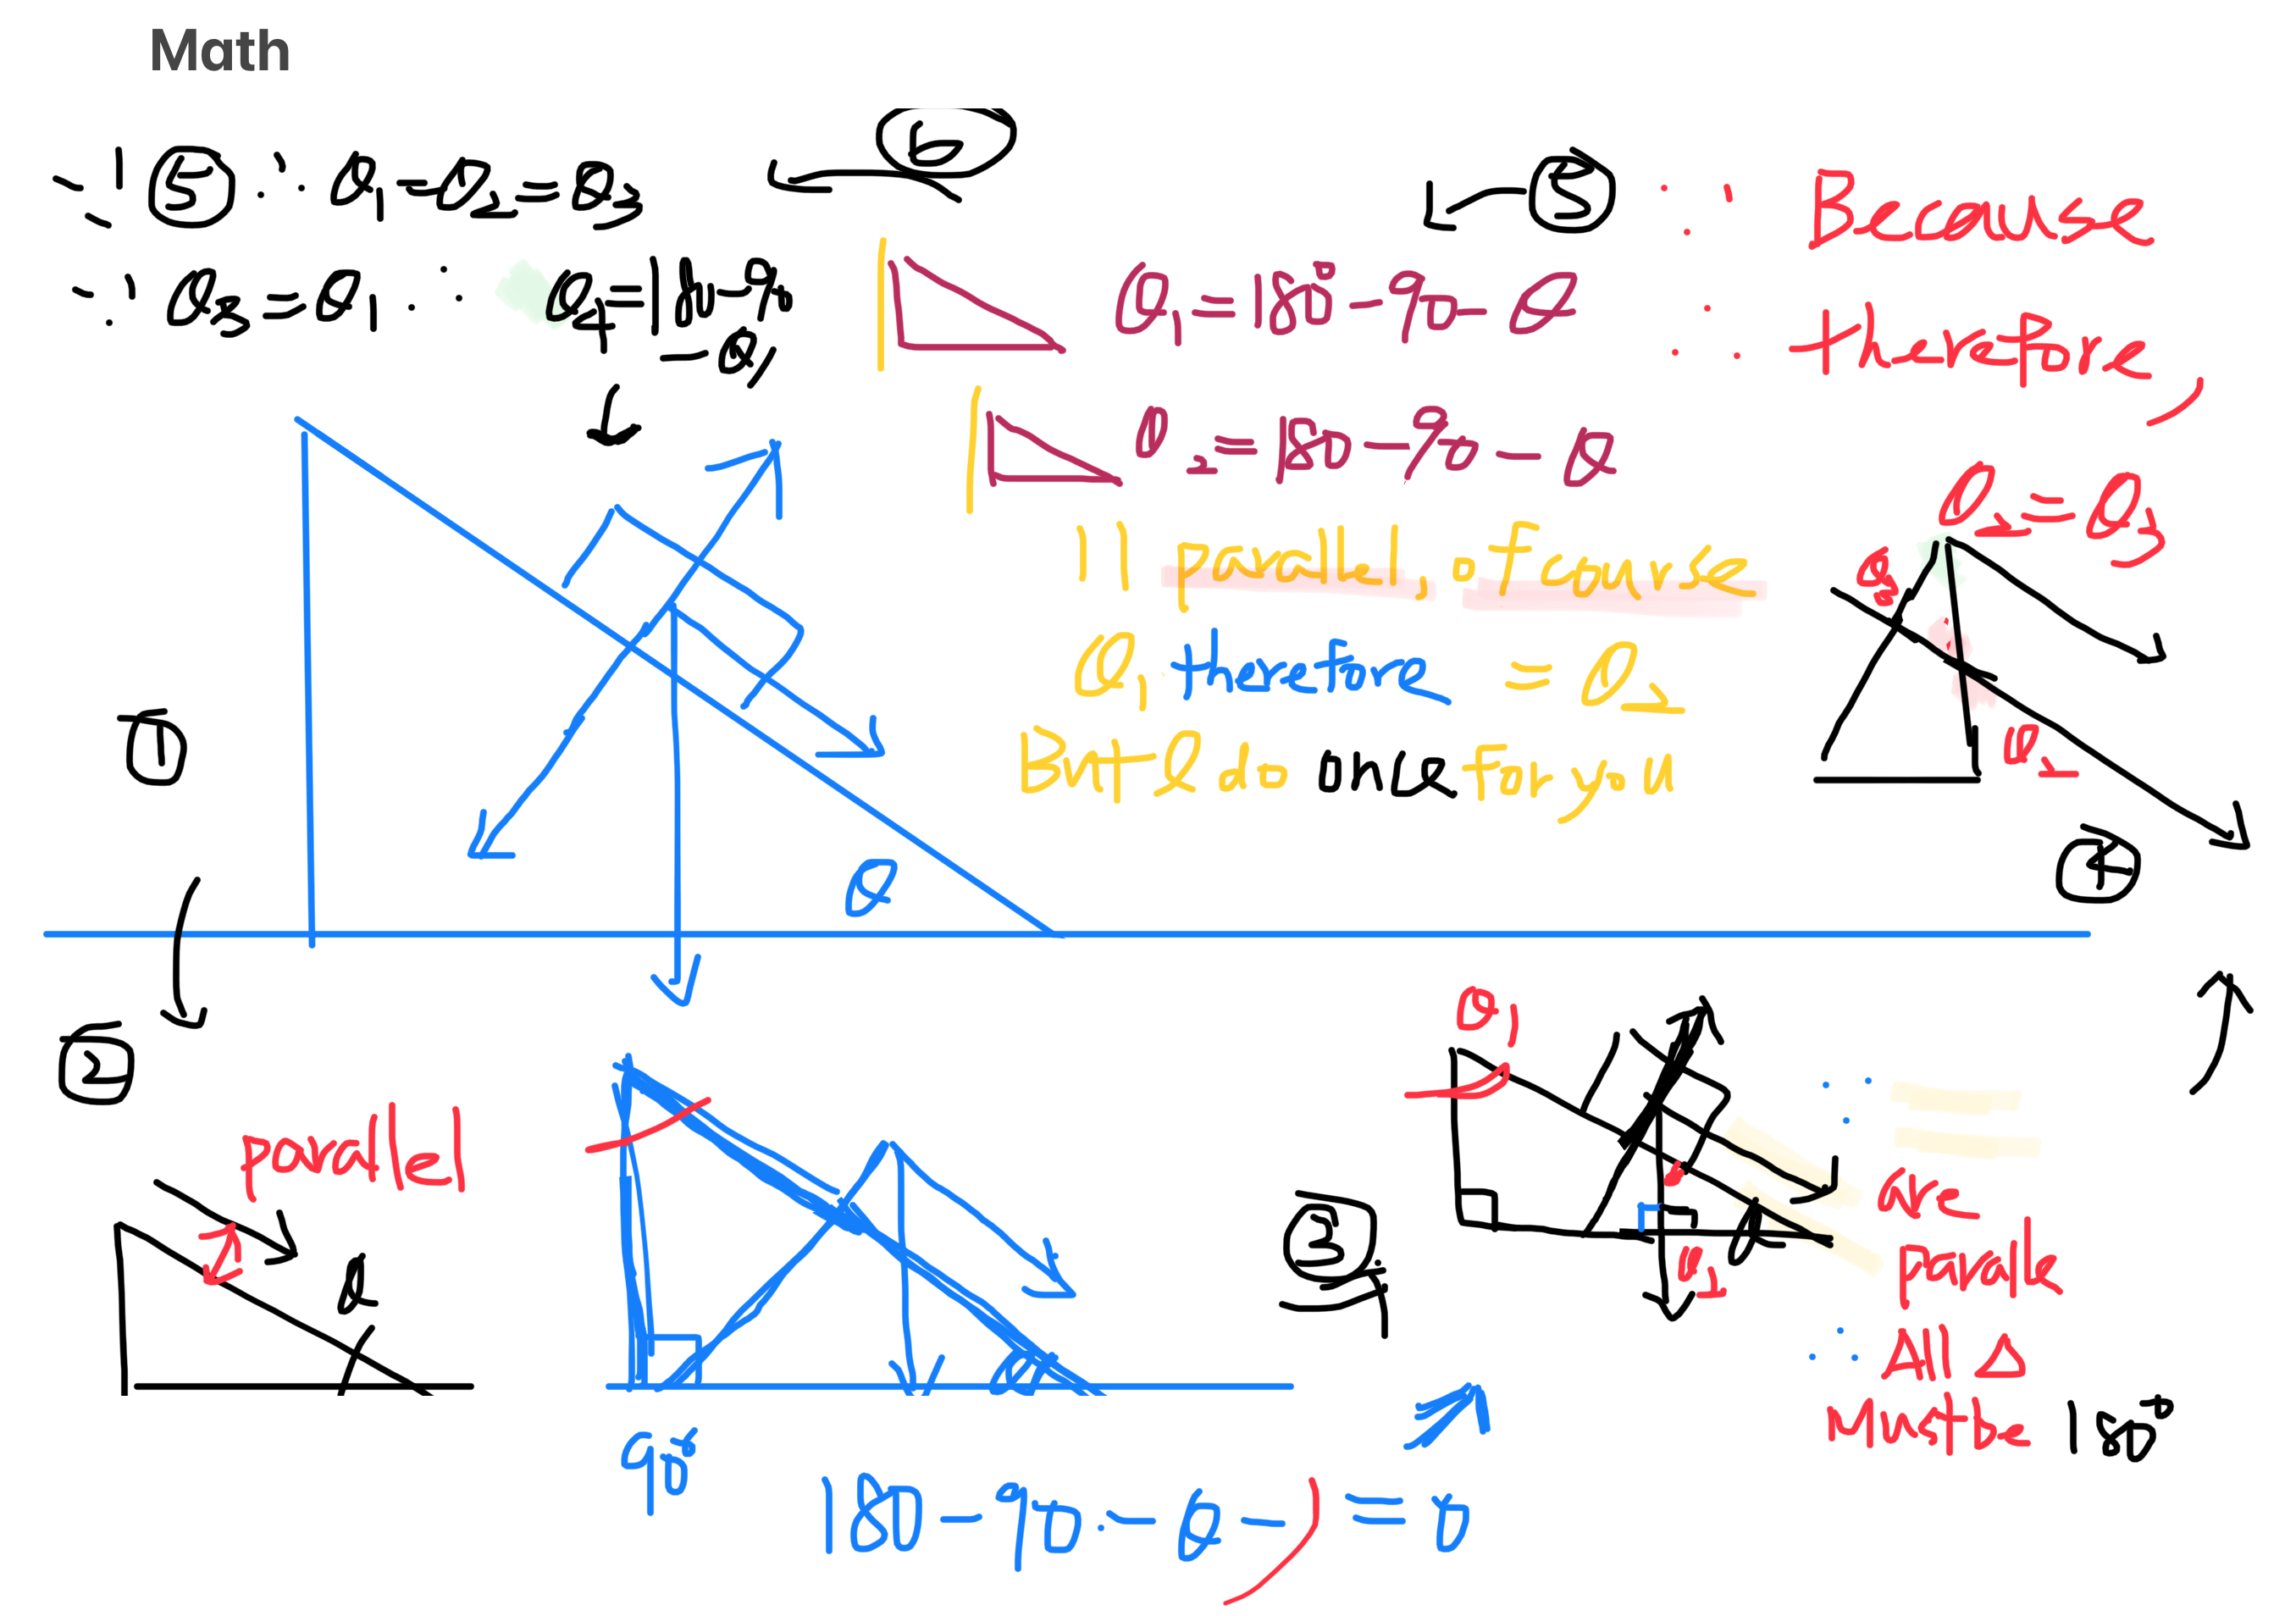 Math
∵ ⑤ ∴ θ₁=θ₂=θ₃
∵ θ₃=θ₁ ∴ θ₄=180-90
-θ₁
⑥
⑤
∵ Because
∴ therefore,
θ₁=180°-90-θ
θ₂=180-90-θ
|| parallel, of course
θ₁ therefore = θ₂
But I do once for you
θ₂=θ₃
θ₃
θ₂
④
①
θ
②
parallel
θ
90°
180-90-θ-)=0
③
θ₁
∵
are
paralle
∴ All Δ
Must be 180°